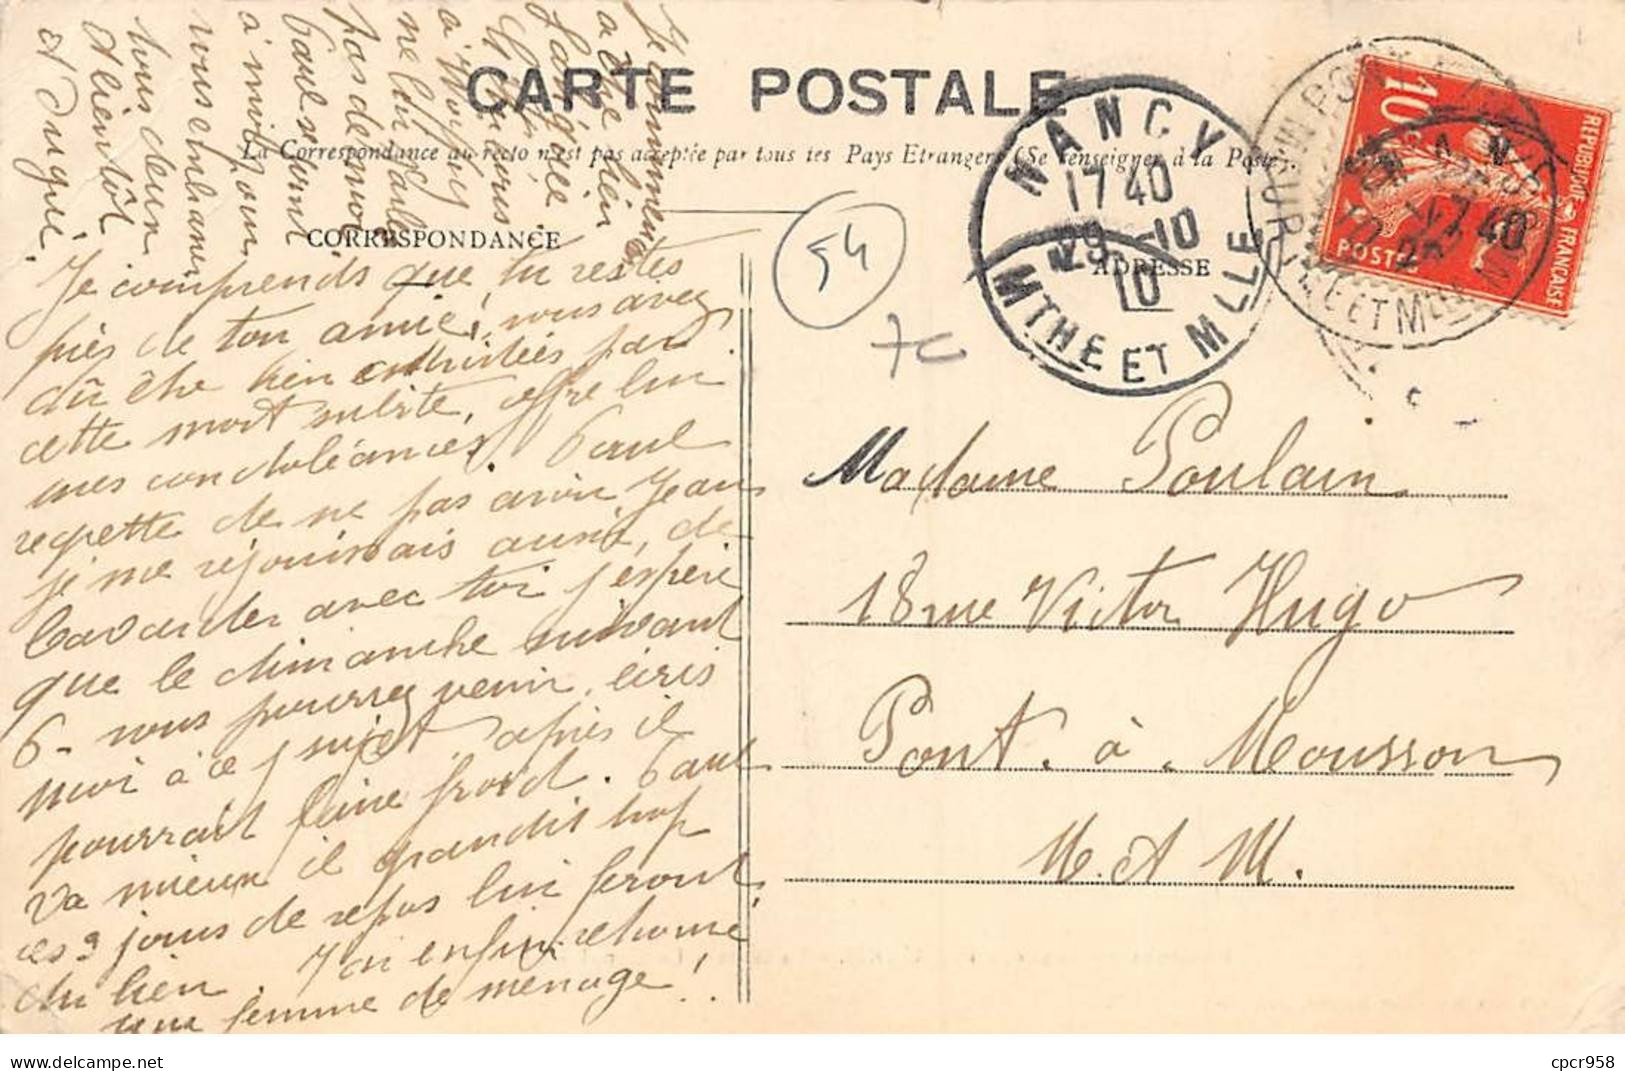 CARTE POSTALE
La Correspondance au recto n'est pas acceptée par tous les Pays Etrangers (Se renseigner à la Poste).
CORRESPONDANCE
ADRESSE
NANCY
17 40
29 -10
10
MTHE ET MLLE
10 c
REPUBLIQUE FRANÇAISE
POSTES
17 40
54
7c
Madame Poulain
18 rue Victor Hugo
Pont. à. Mousson
M. et M.
Je comprends que tu restes
près de ton amie, vous avez
dû être bien attristées par
cette mort subite, offre lui
mes condoléances. Paul
regrette de ne pas avoir Jean
je me réjouissais aussi, de
bavarder avec toi j'espère
que le dimanche suivant
6 - vous pourrez venir, écris
moi à ce sujet, après il
pourrait faire froid. Paul
va mieux il grandit trop
ces 3 jours de repos lui feront
du bien. J'ai enfin retrouvé
une femme de ménage!
Je commence
à être bien
fatiguée
ne lui parle
pas de moi
Paul
à midi
vous embrasser
tous deux
A bientôt
cpcr958